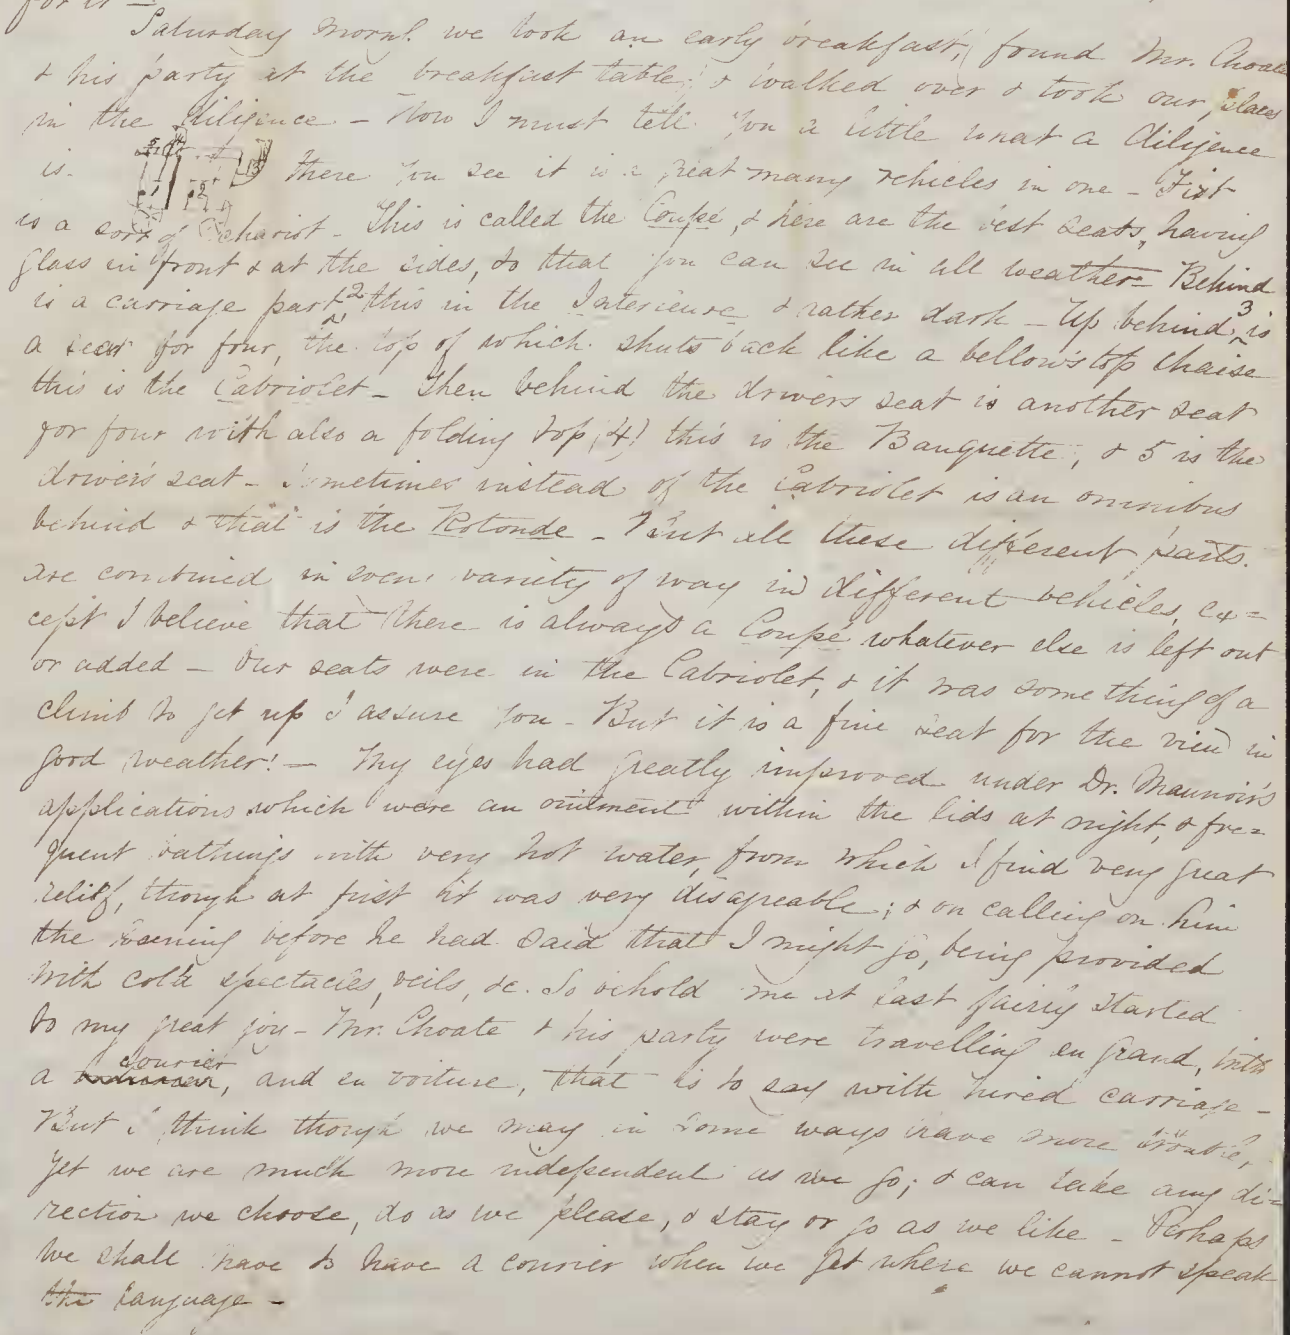 for it —
Saturday morng. we took an early breakfast, found Mr. Choate
& his party at the breakfast table, & walked over & took our places
in the diligence — Now I must tell you a little what a diligence
is. there you see it is a great many vehicles in one — First
is a sort of chariot — This is called the Coupé, & here are the best seats, having
glass in front & at the sides, so that you can see in all weather — Behind
is a carriage part 2 this in the Interieure & rather dark — Up behind 3 is
a seat for four, the top of which shuts back like a bellowstop chaise
this is the Cabriolet — Then behind the drivers seat is another seat
for four with also a folding top (4) this is the Banquette, & 5 is the
driver's seat — Sometimes instead of the Cabriolet is an omnibus
behind & that is the Rotonde — But all these different parts
are combined in every variety of way in different vehicles, ex=
cept I believe that there is always a Coupé whatever else is left out
or added — Our seats were in the Cabriolet, & it was something of a
climb to get up I assure you — But it is a fine seat for the view in
good weather! — My eyes had greatly improved under Dr. Maunoir's
applications which were an ointment within the lids at night, & fre=
quent bathings with very hot water, from which I find very great
relief, though at first it was very disagreable; & on calling on him
the evening before he had said that I might go, being provided
with cold spectacles, veils, &c. So behold me at last fairly started
to my great joy — Mr. Choate & his party were travelling en grand, with
a courier, and en voiture, that is to say with hired carriage —
But I think though we may in some ways have more trouble,
yet we are much more independent as we go; & can take any di=
rection we choose, do as we please, & stay or go as we like — Perhaps
we shall have to have a courier when we get where we cannot speak
the language —